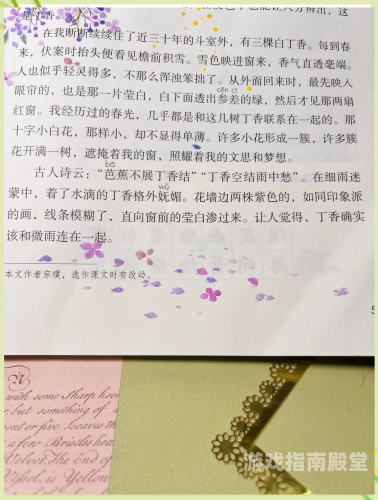 是丁香。
在我断断续续住了近三十年的斗室外，有三棵白丁香。每到春
来，伏案时抬头便看见檐前积雪。雪色映进窗来，香气直透毫端。
人也似乎轻灵得多，不那么浑浊笨拙了。从外面回来时，最先映入
眼帘的，也是那一片莹白，白下面透出参差的绿，然后才见那两扇
cēn cī
红窗。我经历过的春光，几乎都是和这几树丁香联系在一起的。那
十字小白花，那样小，却不显得单薄。许多小花形成一簇，许多簇
花开满一树，遮掩着我的窗，照耀着我的文思和梦想。
bā
古人诗云：“芭蕉不展丁香结”“丁香空结雨中愁”。在细雨迷
wǔ
蒙中，着了水滴的丁香格外妩媚。花墙边两株紫色的，如同印象派
的画，线条模糊了，直向窗前的莹白渗过来。让人觉得，丁香确实
该和微雨连在一起。
本文作者宗璞，选作课文时有改动。
5
with some Sharp
but something of
or five Leaves
a few Bristles
Velvet. The End of
Vessel, is Yellow
游戏指南殿堂